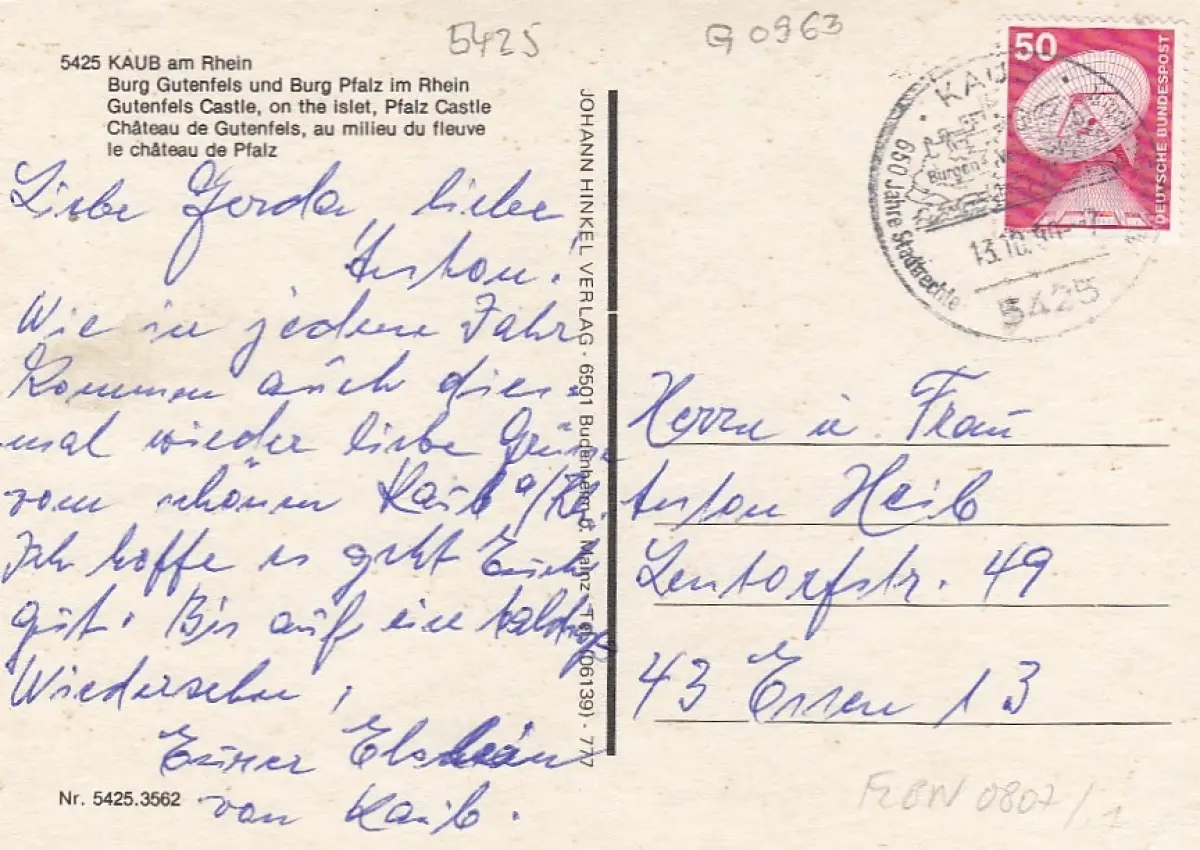 5425
G 0963
5425 KAUB am Rhein
Burg Gutenfels und Burg Pfalz im Rhein
Gutenfels Castle, on the islet, Pfalz Castle
Château de Gutenfels, au milieu du fleuve
le château de Pfalz
Liebe Gerda, lieber
Anton!
Wie in jedem Jahr
kommen auch dies-
mal wieder liebe Grüße
vom schönen Kaub a/Rh.
Ich hoffe es geht Euch
gut. Bis auf ein
Wiedersehen,
Eurer
von Kaub.
Nr. 5425.3562
JOHANN HINKEL VERLAG · 6501 Budenheim b. Mainz · Tel. (06139) - 777
50
DEUTSCHE BUNDESPOST
KAUB
650 Jahre Stadtrechte
Burgen
13.10.
5425
Herrn u. Frau
Anton Heib
Lentorfstr. 49
43 Essen 13